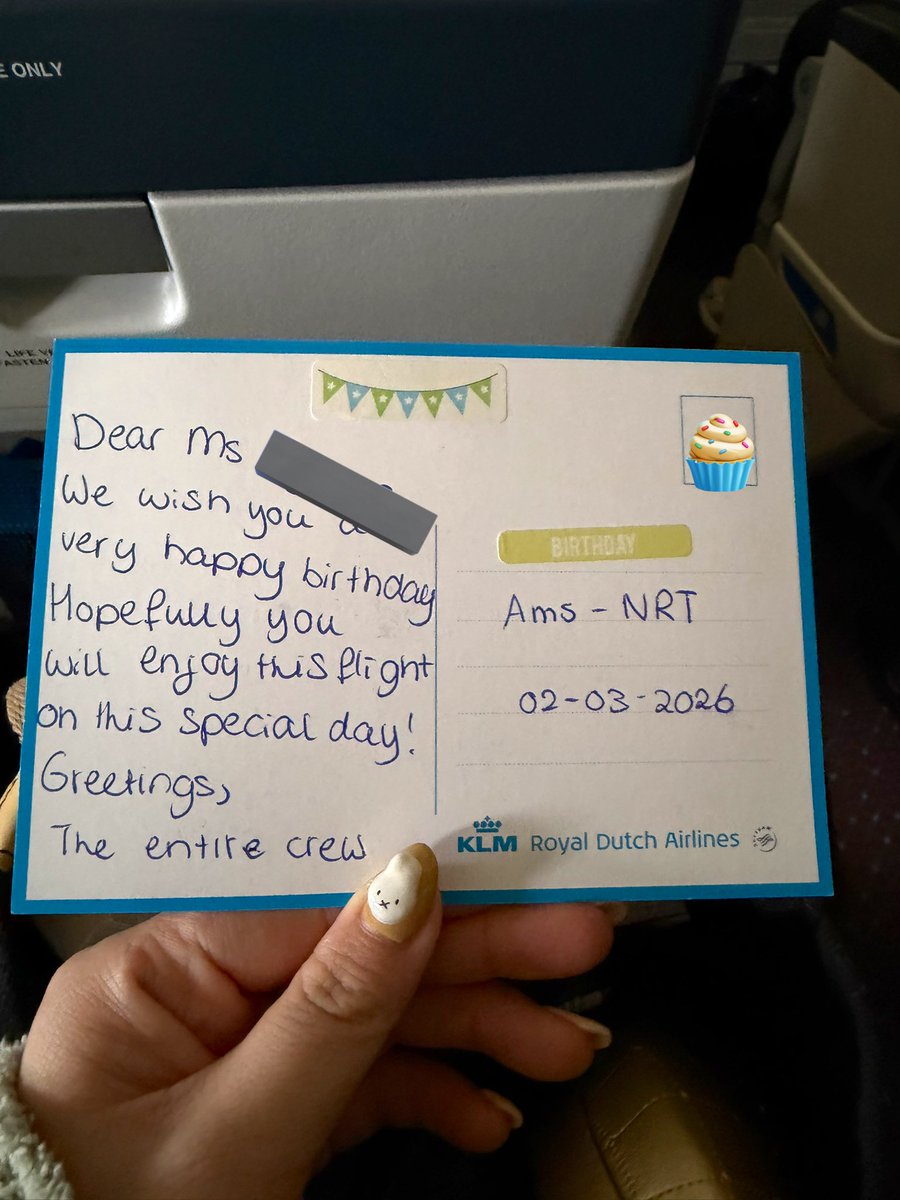 E ONLY
LIFE V
FASTEN
Dear Ms
We wish you a
very happy birthday
Hopefully you
will enjoy this flight
on this special day!
Greetings,
The entire crew
BIRTHDAY
Ams - NRT
02-03-2026
KLM Royal Dutch Airlines